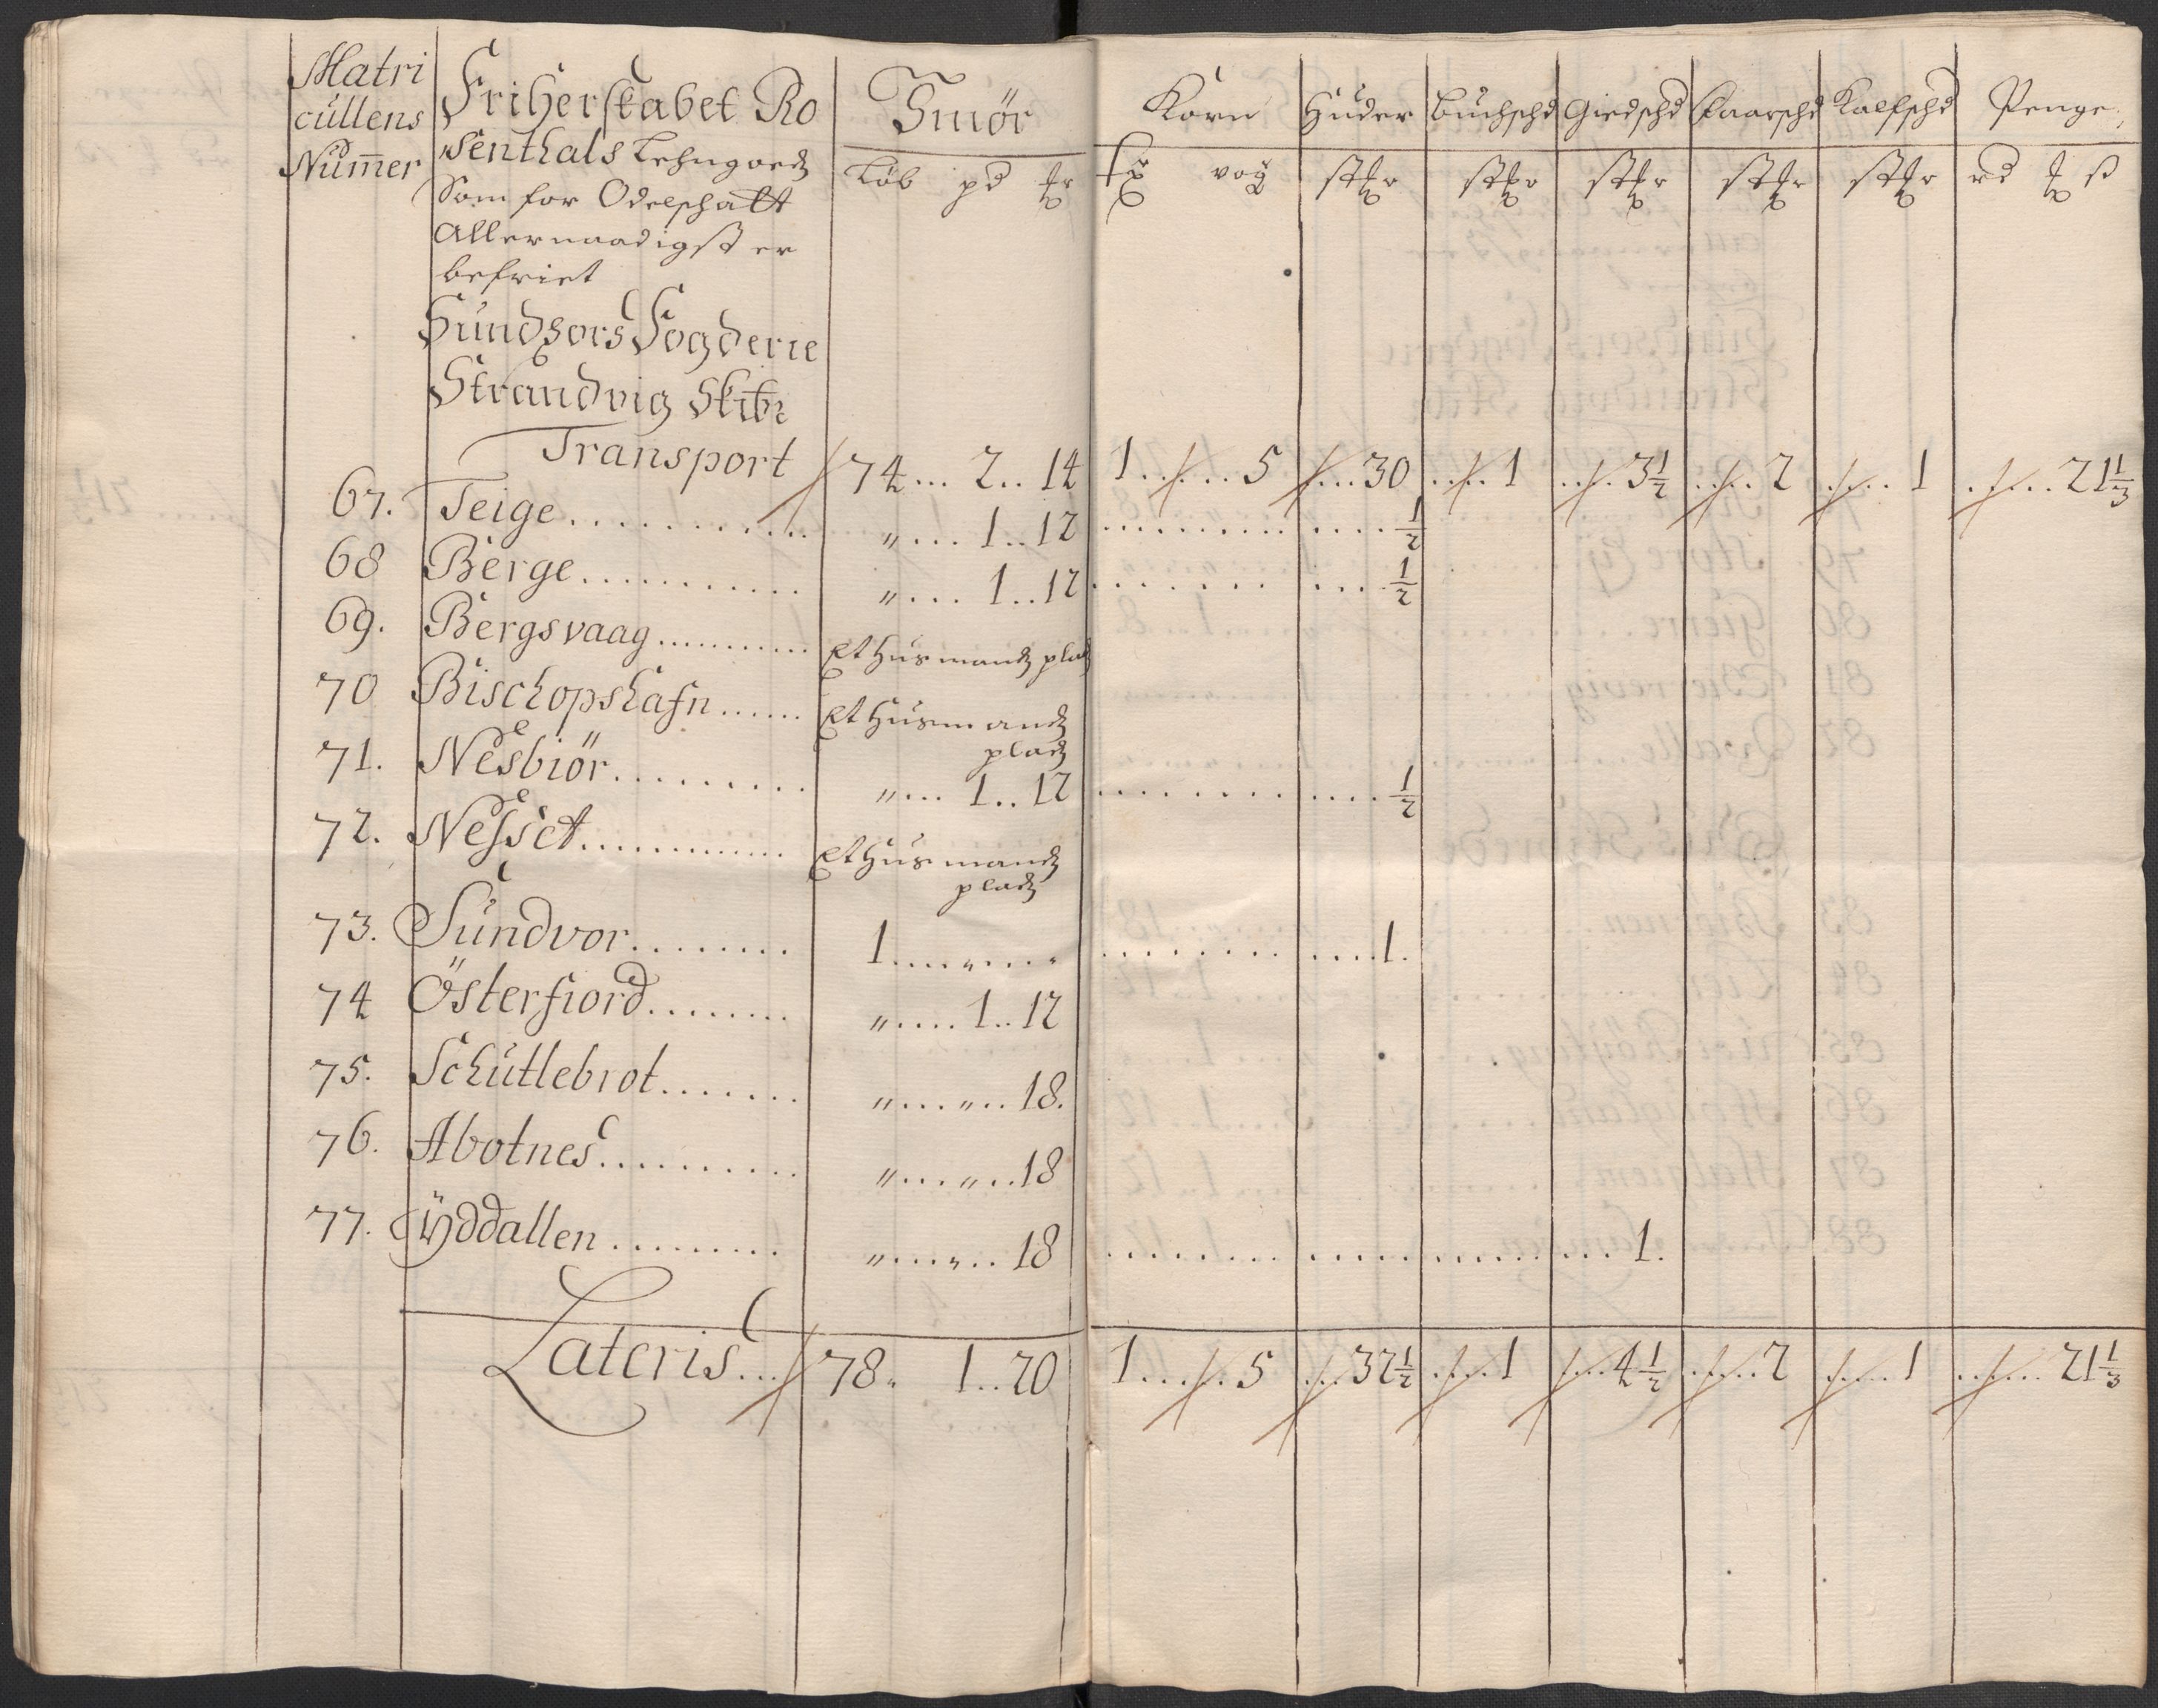 Matri
cullens
Num̅er
Friherskabet Ro
senthals Lehngoedz
Som for Odelschatt
Allernaadigst er
befriet
Sundhors Fogderie
Strandvig Skibr
Smör
Löb pd
Korn
vog
Huder
Buchschd
Giedschd
Faarschd
Kalfschd
Penge
rd ß
Transport 74... 2.. 14 1..... 5 ....30 ....1 ....3½ ....2 ..... 1 ..... 21⅓
67. Teige.......... „... 1..12 ......... .... ½
68 Berge.......... „... 1..12 ........ .... ½
69. Bergsvaag.......... Et Husmandz pladz
70 Bischopshafn...... Et Husmandz
pladz
71. Nesbiör......... „... 1..12 ......... .... ½
72. Nesset............. Et Husmandz
pladz
73. Sundvor........ 1....„.... ......... ....1.
74 Österfiord........ „..... 1..12
75. Schutlebrot....... „...„..18.
76. Abotnes.......... „...„..18
77. Yddallen......... „...„..18 ......................... 1.
Lateris... 78. 1..20 1..... 5 ...32½ ....1 ....4½ .....2 .....1 ...... 21⅓